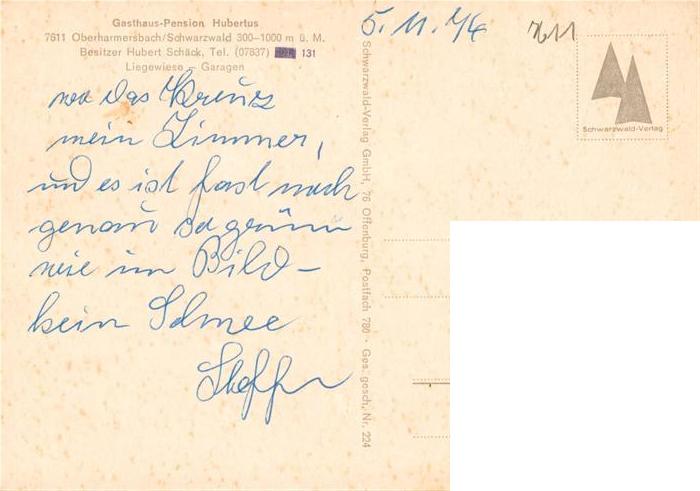 Gasthaus-Pension Hubertus
7611 Oberharmersbach/Schwarzwald 300-1000 m ü. M.
Besitzer Hubert Schäck, Tel. (07837) 131
Liegewiese – Garagen
wo das Kreuz
mein Zimmer,
und es ist fast noch
genau so grün
wie im Bild –
kein Schnee
Steffen
5. 11. 74
7611
Schwarzwald-Verlag
Schwarzwald-Verlag GmbH, 76 Offenburg, Postfach 780 · Ges. gesch. Nr. 224